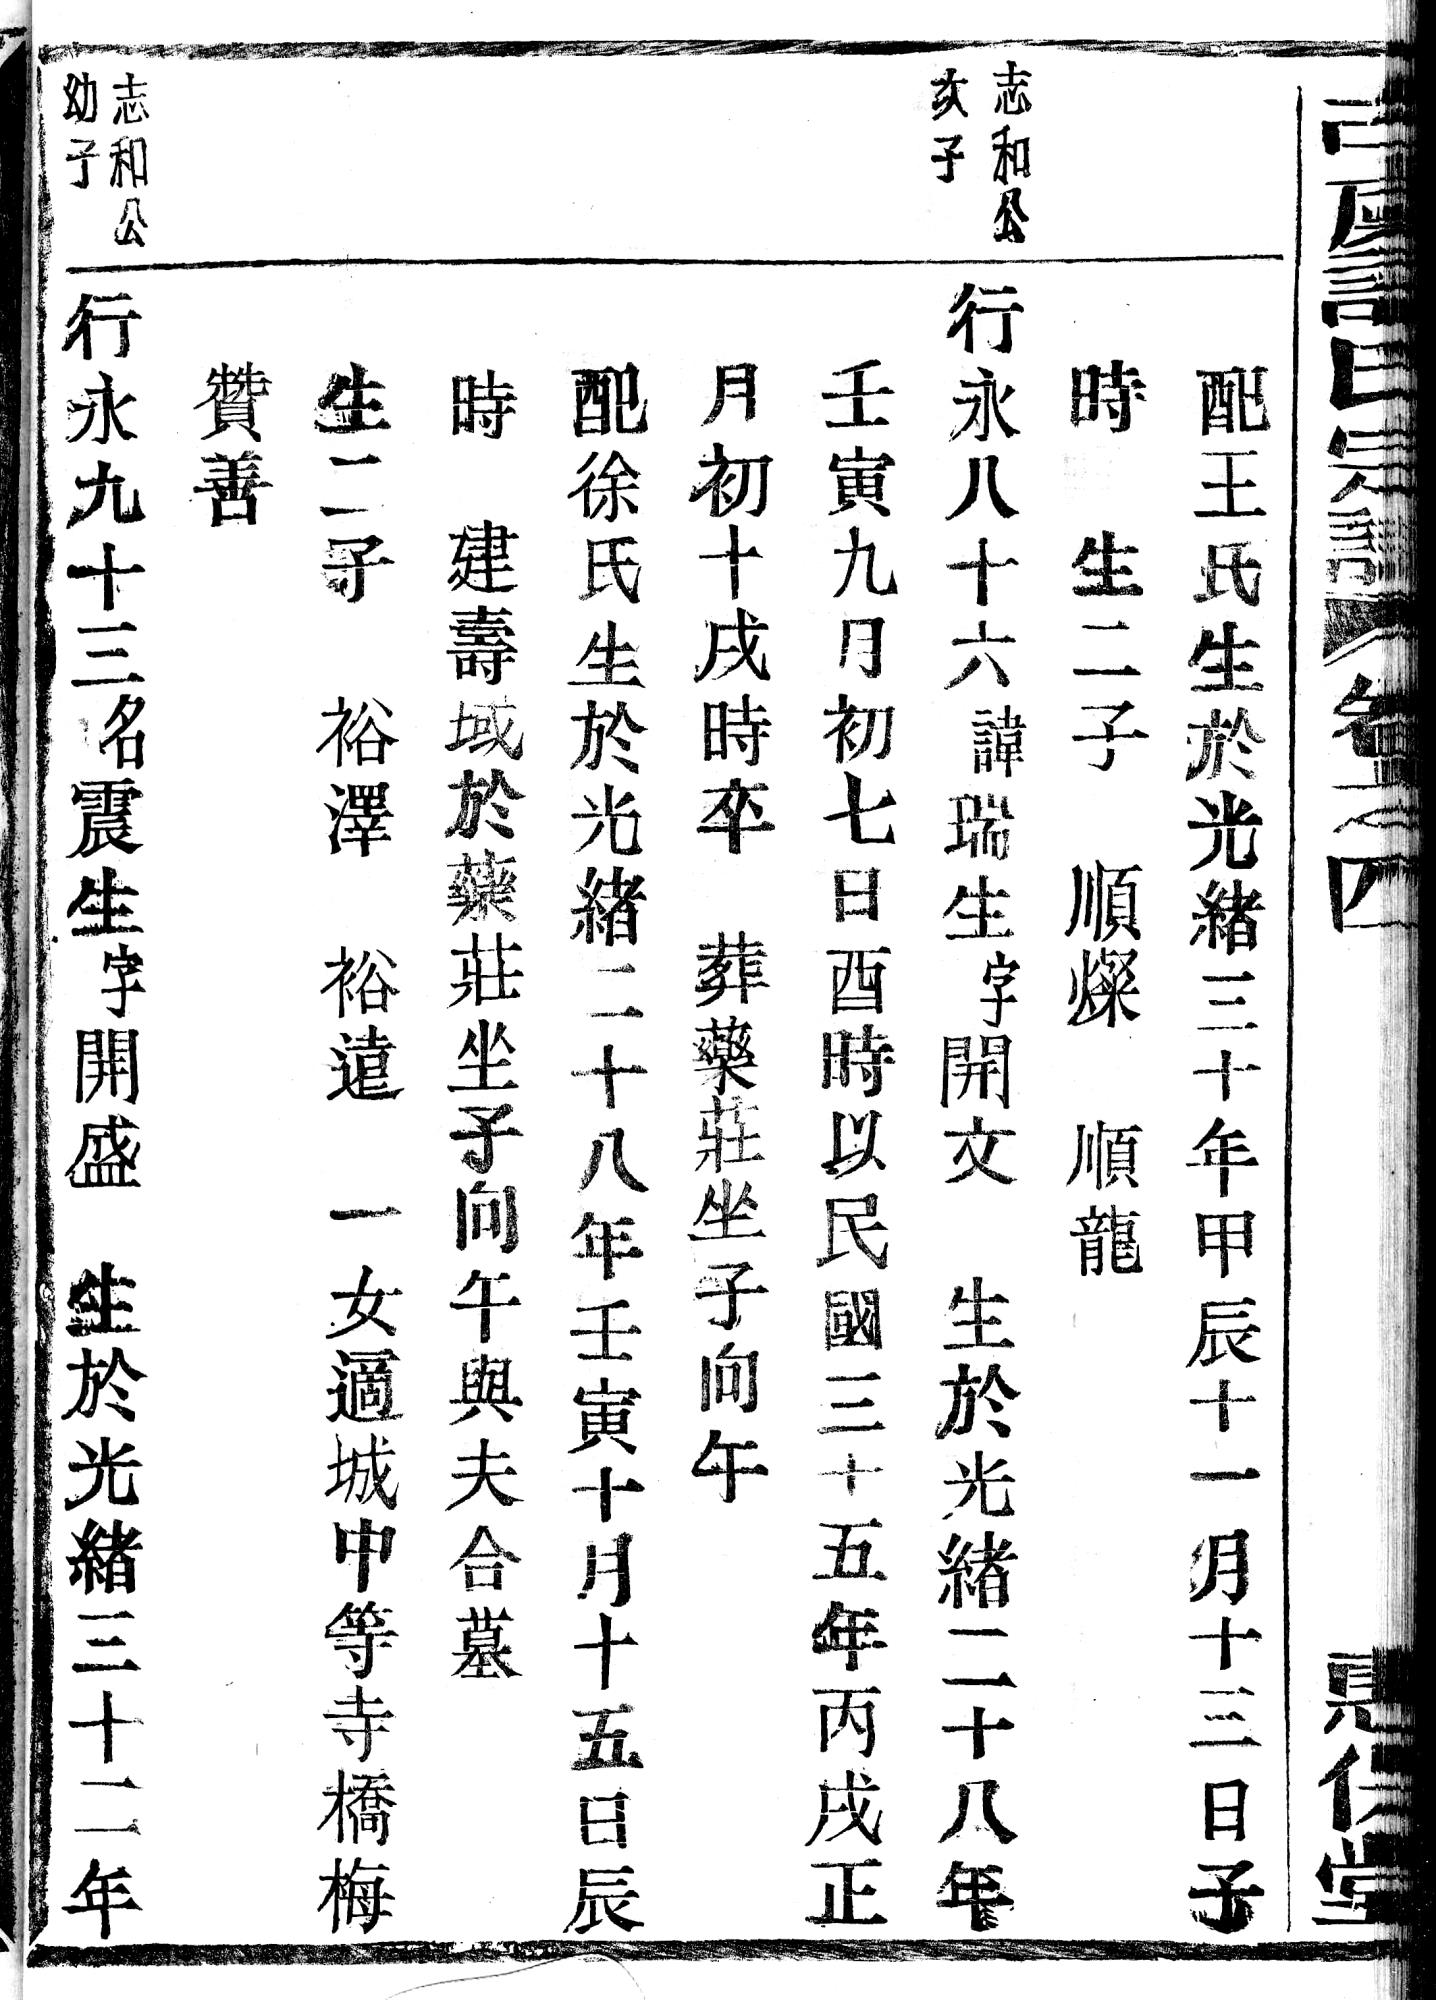 卷之四
配王氏生於光緒三十年甲辰十一月十三日子
時　生二子　順燦　順龍
志和公
次子
行永八十六諱瑞生字開文　生於光緒二十八年
壬寅九月初七日酉時以民國三十五年丙戌正
月初十戌時卒　葬藥莊坐子向午
配徐氏生於光緒二十八年壬寅十月十五日辰
時　建壽域於藥莊坐子向午與夫合墓
生二子　裕澤　裕遠　一女適城中等寺橋梅
贊善
志和公
幼子
行永九十三名震生字開盛　生於光緒三十二年